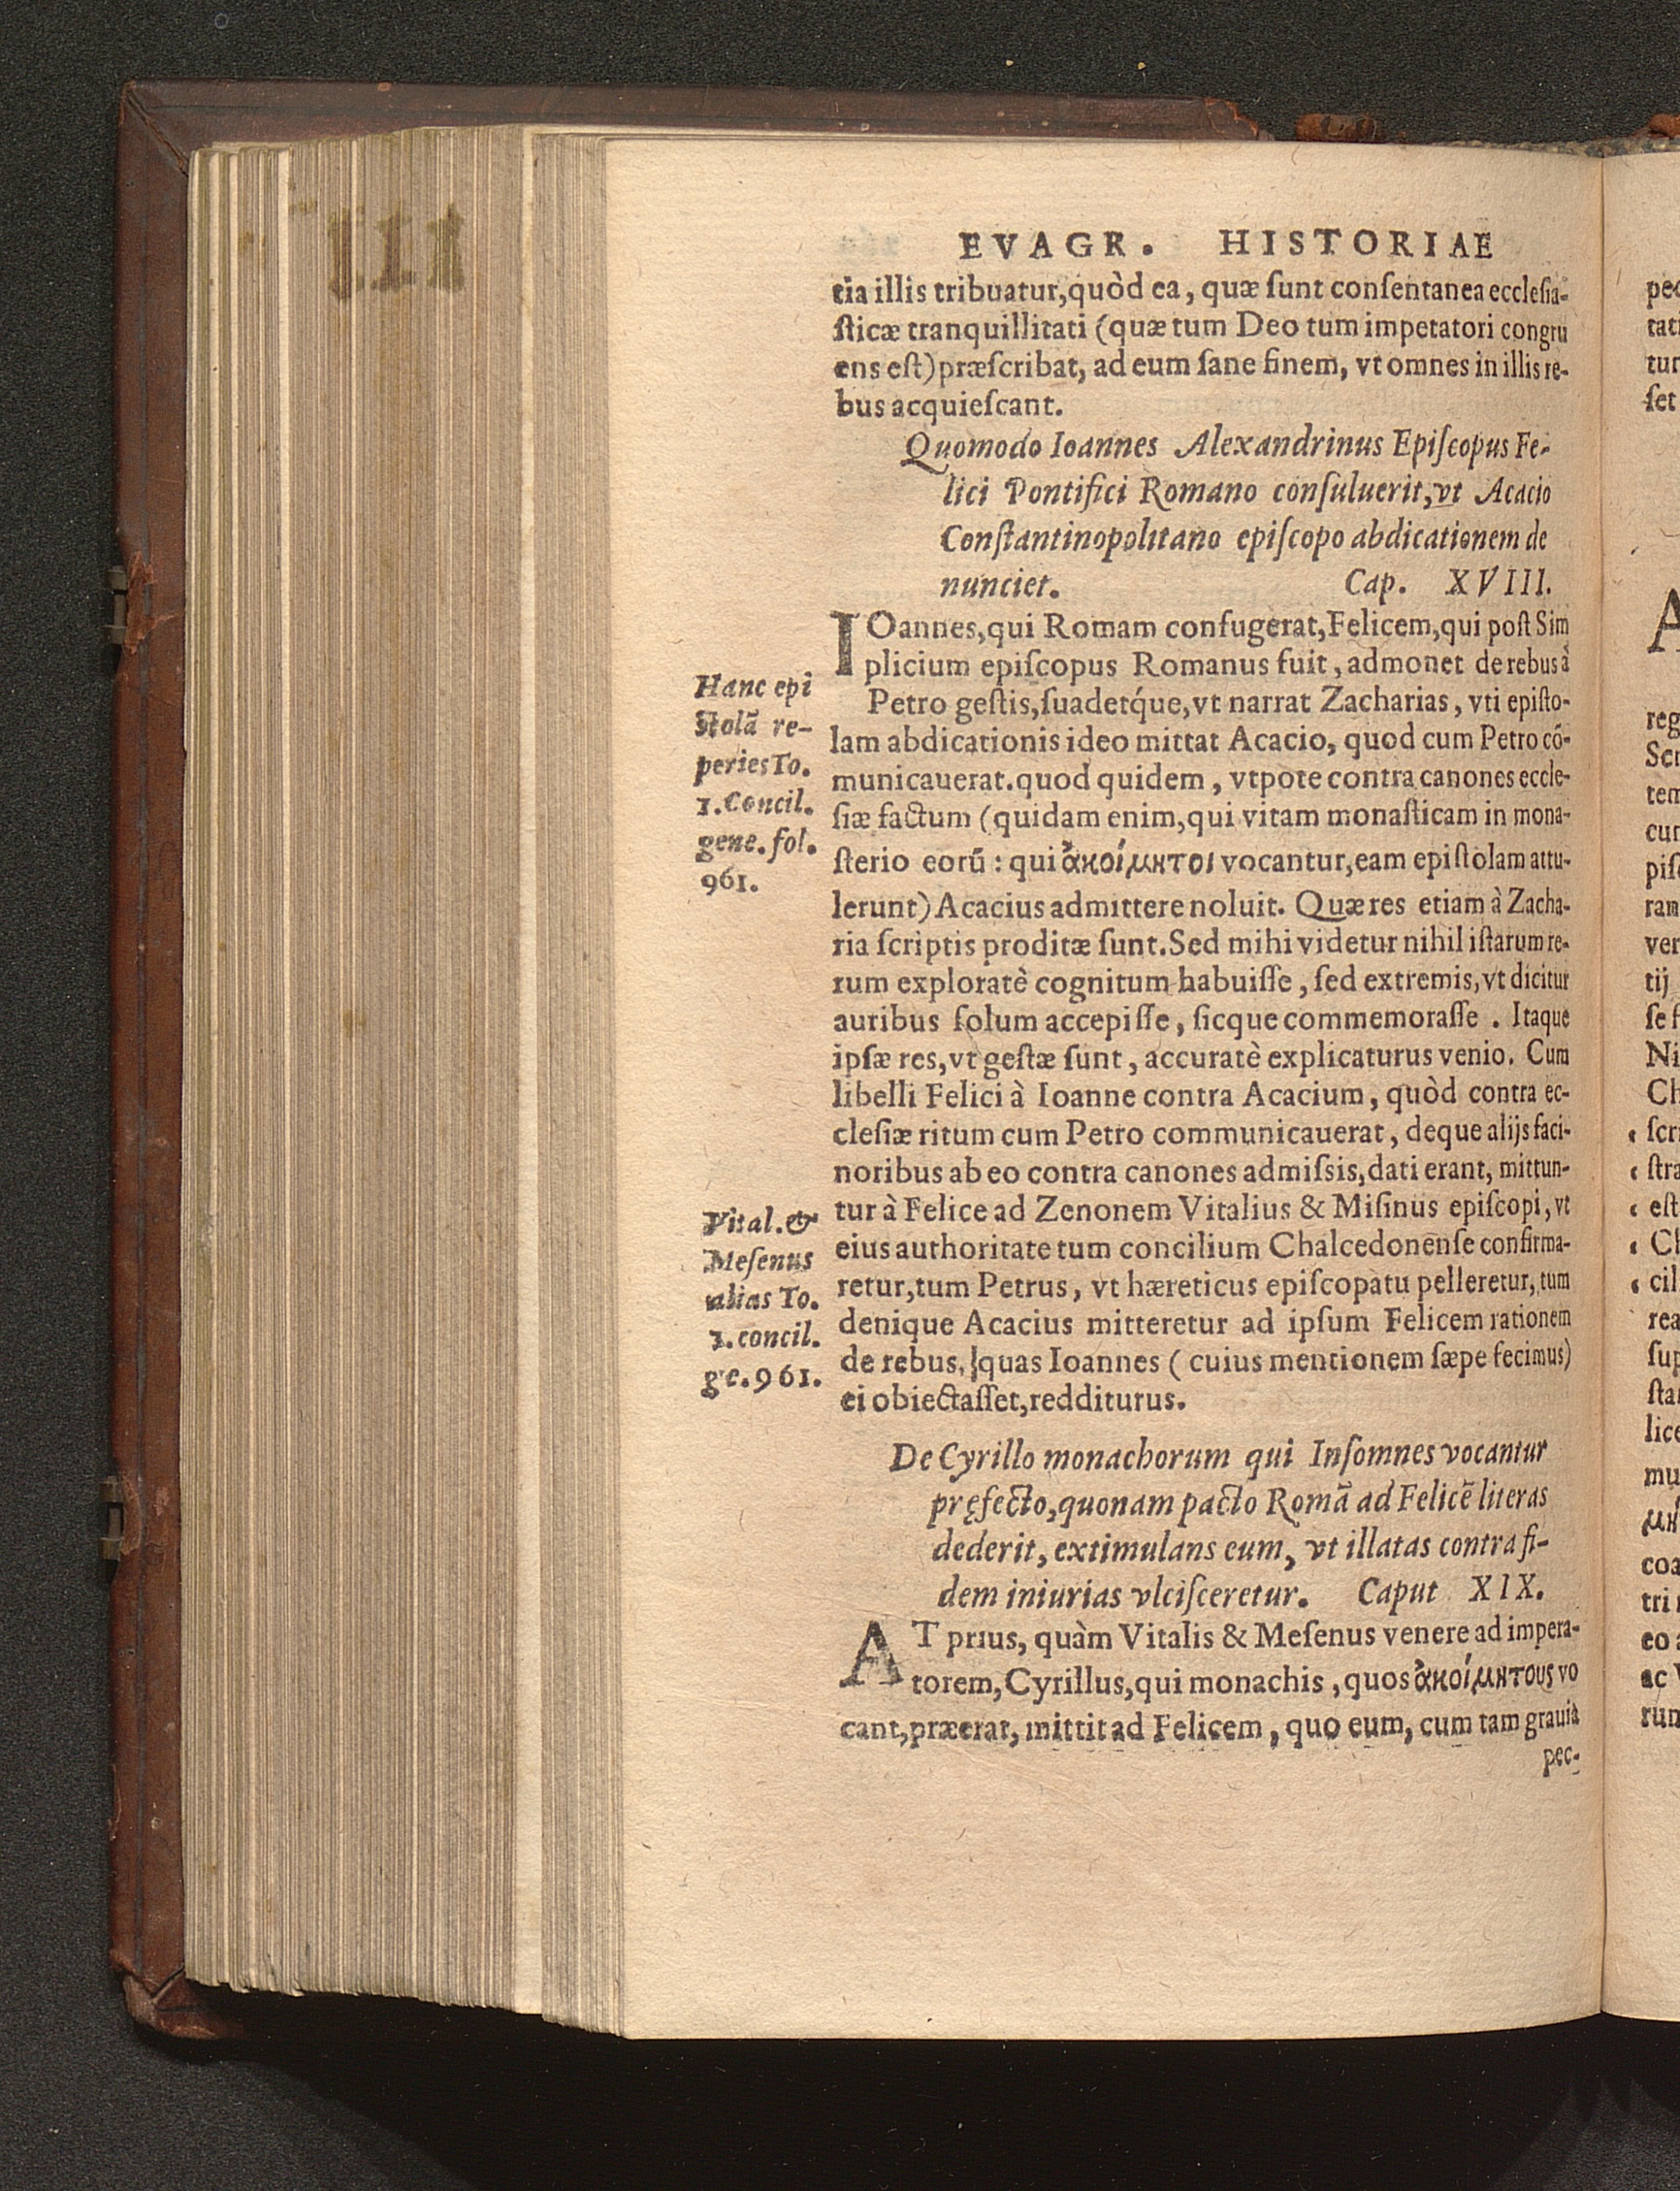 EVAGR. HISTORIAE
tia illis tribuatur, quòd ea, quæ ſunt conſentanea eccleſia-
ſticæ tranquillitati (quæ tum Deo tum impetatori congru
ens eſt) præſcribat, ad eum ſane finem, vt omnes in illis re-
bus acquieſcant.
Quomodo Ioannes Alexandrinus Epiſcopus Fe-
lici Pontifici Romano conſuluerit, vt Acacio
Conſtantinopolitano epiſcopo abdicationem de
nunciet. Cap. XVIII.
IOannes, qui Romam confugerat, Felicem, qui poſt Sim
plicium epiſcopus Romanus fuit, admonet de rebus à
Petro geſtis, ſuadetq́ue, vt narrat Zacharias, vti epiſto-
lam abdicationis ideo mittat Acacio, quod cum Petro cō-
municauerat. quod quidem, vtpote contra canones eccle-
ſiæ factum (quidam enim, qui vitam monaſticam in mona-
ſterio eorū: qui ἀκοίμητοι vocantur, eam epiſtolam attu-
lerunt) Acacius admittere noluit. Quæ res etiam à Zacha-
ria ſcriptis proditæ ſunt. Sed mihi videtur nihil iſtarum re-
rum exploratè cognitum habuiſſe, ſed extremis, vt dicitur
auribus ſolum accepiſſe, ſicque commemoraſſe. Itaque
ipſæ res, vt geſtæ ſunt, accuratè explicaturus venio. Cum
libelli Felici à Ioanne contra Acacium, quòd contra ec-
cleſiæ ritum cum Petro communicauerat, deque alijs faci-
noribus ab eo contra canones admiſsis, dati erant, mittun-
tur à Felice ad Zenonem Vitalius & Miſinus epiſcopi, vt
eius authoritate tum concilium Chalcedonenſe confirma-
retur, tum Petrus, vt hæreticus epiſcopatu pelleretur, tum
denique Acacius mitteretur ad ipſum Felicem rationem
de rebus, quas Ioannes (cuius mentionem ſæpe fecimus)
ei obiectaſſet, redditurus.
De Cyrillo monachorum qui Inſomnes vocantur
pręfecto, quonam pacto Romā ad Felicē literas
dederit, extimulans eum, vt illatas contra fi-
dem iniurias vlciſceretur. Caput XIX.
AT prius, quàm Vitalis & Meſenus venere ad impera-
torem, Cyrillus, qui monachis, quos ἀκοίμητους vo
cant, præerat, mittit ad Felicem, quo eum, cum tam grauia
pec-
Hanc epi
ſtolā re-
peries To.
1. Concil.
gene. fol.
961.
Vital. &
Meſenus
alias To.
1. concil.
ge. 961.